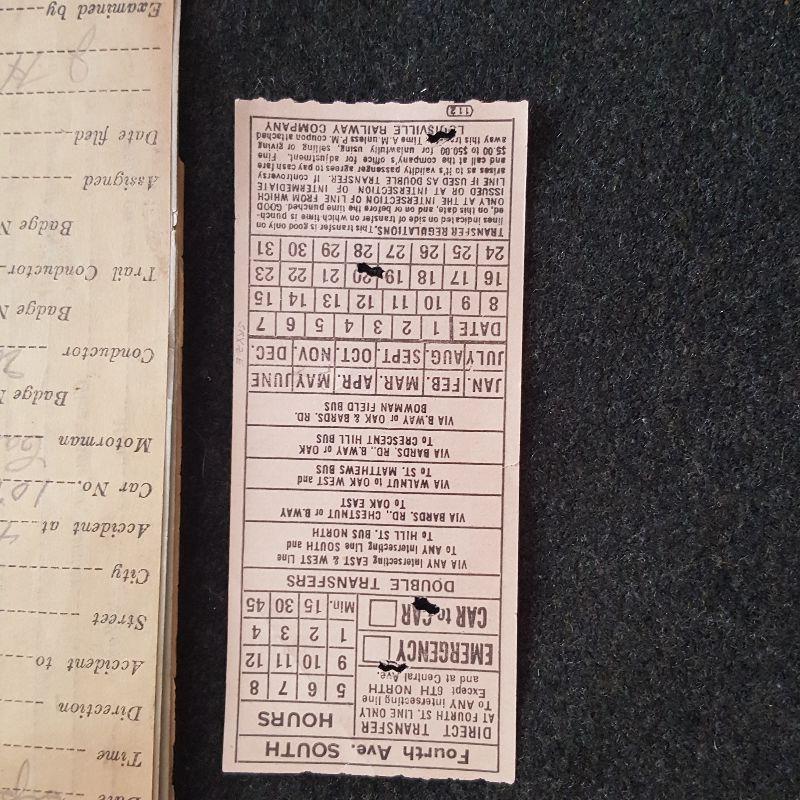 Fourth Ave. SOUTH
DIRECT TRANSFER
AT FOURTH ST. LINE ONLY
To ANY intersecting line
Except 6TH NORTH
and at Central Ave.
EMERGENCY
CAR to CAR
HOURS
5 6 7 8
9 10 11 12
1 2 3 4
Min. 15 30 45
DOUBLE TRANSFERS
VIA ANY EAST & WEST Line
To ANY Intersecting Line SOUTH and
To HILL ST. BUS NORTH
VIA BARDS. RD., CHESTNUT or B.WAY
To OAK EAST
VIA WALNUT to OAK WEST and
To ST. MATTHEWS BUS
VIA BARDS. RD., B.WAY or OAK
To CRESCENT HILL BUS
VIA B.WAY or OAK & BARDS. RD.
BOWMAN FIELD BUS
JAN. FEB. MAR. APR. MAY JUNE
JULY AUG. SEPT. OCT. NOV. DEC.
DATE 1 2 3 4 5 6 7
8 9 10 11 12 13 14 15
16 17 18 19 20 21 22 23
24 25 26 27 28 29 30 31
TRANSFER REGULATIONS. This transfer is good only on
lines indicated on side of transfer on which time is punch-
ed, on this date, and on or before the time punched. GOOD
ONLY AT THE INTERSECTION OF LINE FROM WHICH
ISSUED OR AT INTERSECTION OF INTERMEDIATE
LINE IF USED AS DOUBLE TRANSFER. If controversy
arises as to it's validity passenger agrees to pay cash fare
and call at the company's office for adjustment. Fine
$5.00 to $50.00 for unlawfully using, selling or giving
away this Time A.M. unless P.M. coupon attached
LOUISVILLE RAILWAY COMPANY
112
Date
Time
Direction
Accident to
Street
City
Accident at
Car No.
Motorman
Badge N
Conductor
Badge N
Trail Conductor
Badge N
Assigned
Date filed
Examined by